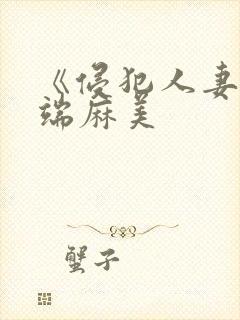 《侵犯人妻
端麻美
蟹子